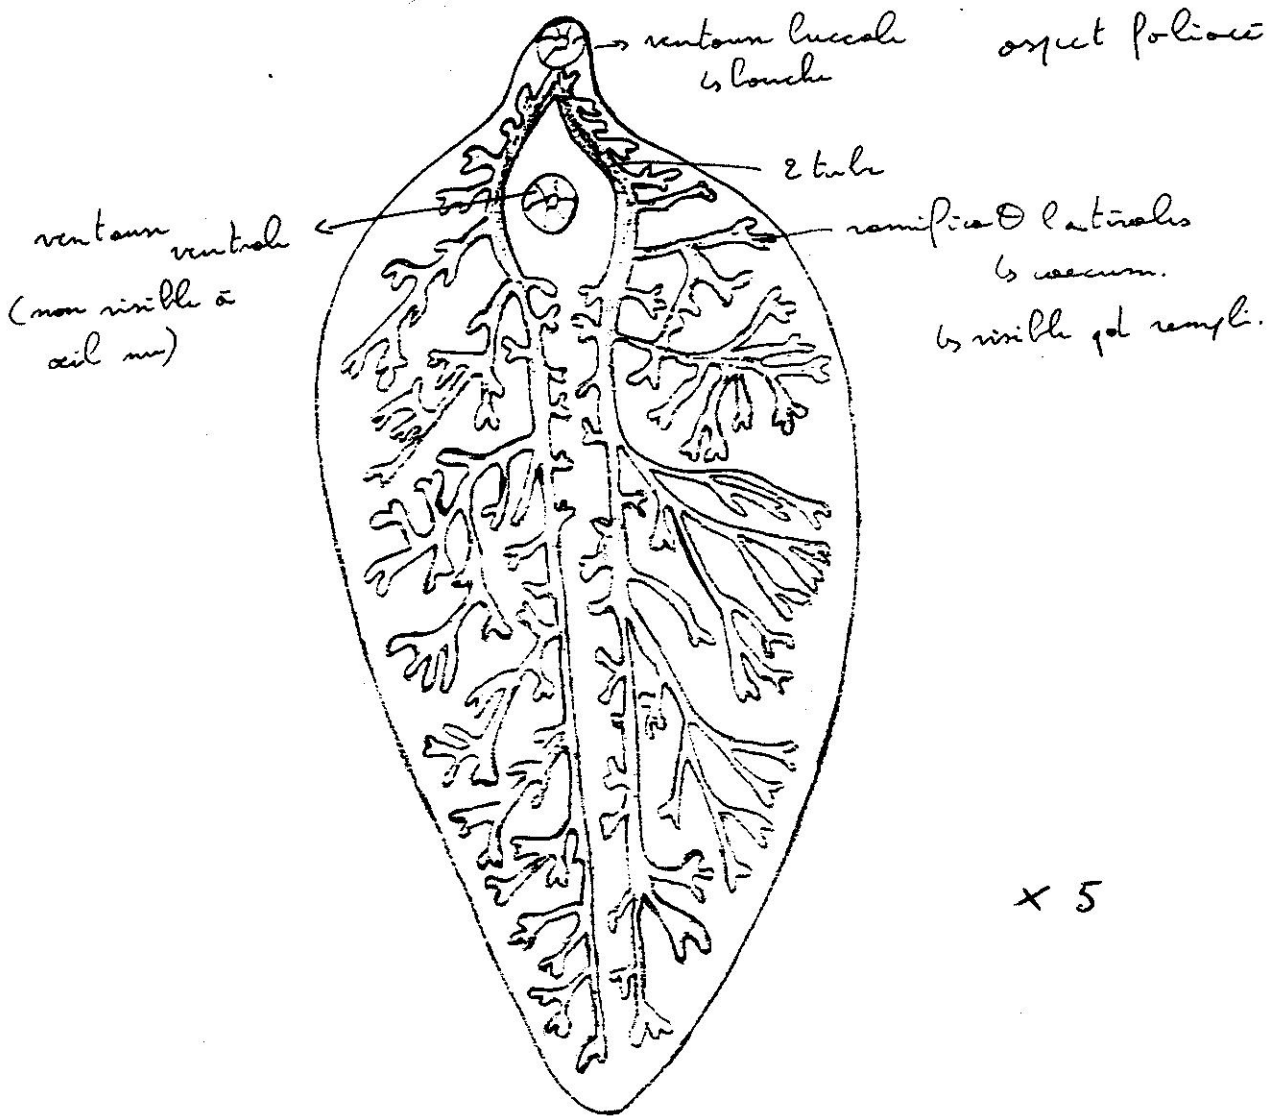 ventouse buccale
↳ bouche
aspect foliacé
2 tube
ventouse ventrale
(non visible à
œil nu)
ramificaΘ latérales
↳ coecum.
↳ visible qd rempli.
× 5